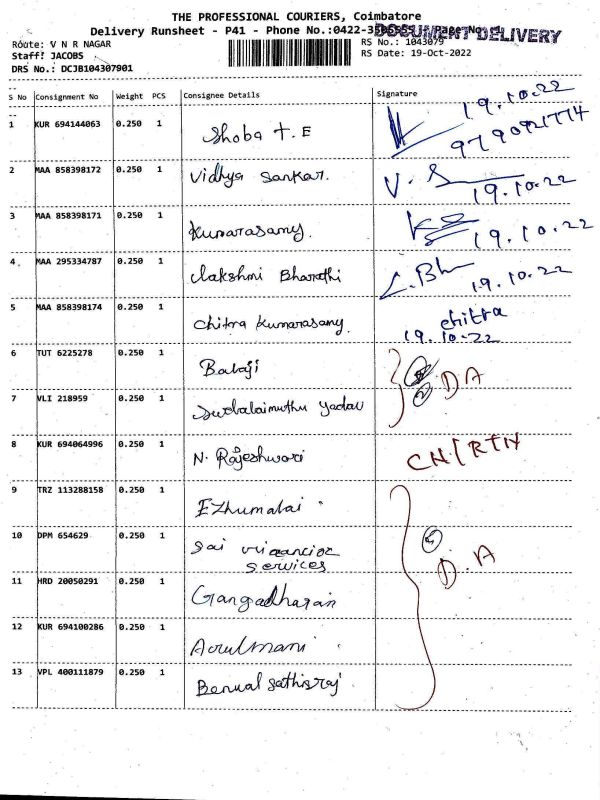 THE PROFESSIONAL COURIERS, Coimbatore
Delivery Runsheet - P41 - Phone No.:0422- Page No
DOCUMENT DELIVERY
Route: V N R NAGAR
RS No.: 1043079
Staff: JACOBS
RS Date: 19-Oct-2022
DRS No.: DCJB104307901
S No Consignment No Weight PCS Consignee Details Signature
1 KUR 694144063 0.250 1 Shoba T. E 19.10.22
9790921774
2 MAA 858398172 0.250 1 Vidhya Sankar. V. S
19.10.22
3 MAA 858398171 0.250 1 Kumarasamy. 19.10.22
4 MAA 295334787 0.250 1 Lakshmi Bharathi L. Bh 19.10.22
5 MAA 858398174 0.250 1 Chitra Kumarasamy. chitra
19.10.22
6 TUT 6225278 0.250 1 Balaji DA
7 VLI 218959 0.250 1 yadav
8 KUR 694064996 0.250 1 N. Rajeshwari CN/RTN
9 TRZ 113288158 0.250 1 Ezhumalai
10 DPM 654629 0.250 1 Sai
services
D.A
11 HRD 20050291 0.250 1 Gangadharan
12 KUR 694100286 0.250 1 Aoulmani
13 VPL 400111879 0.250 1 Sathisraj